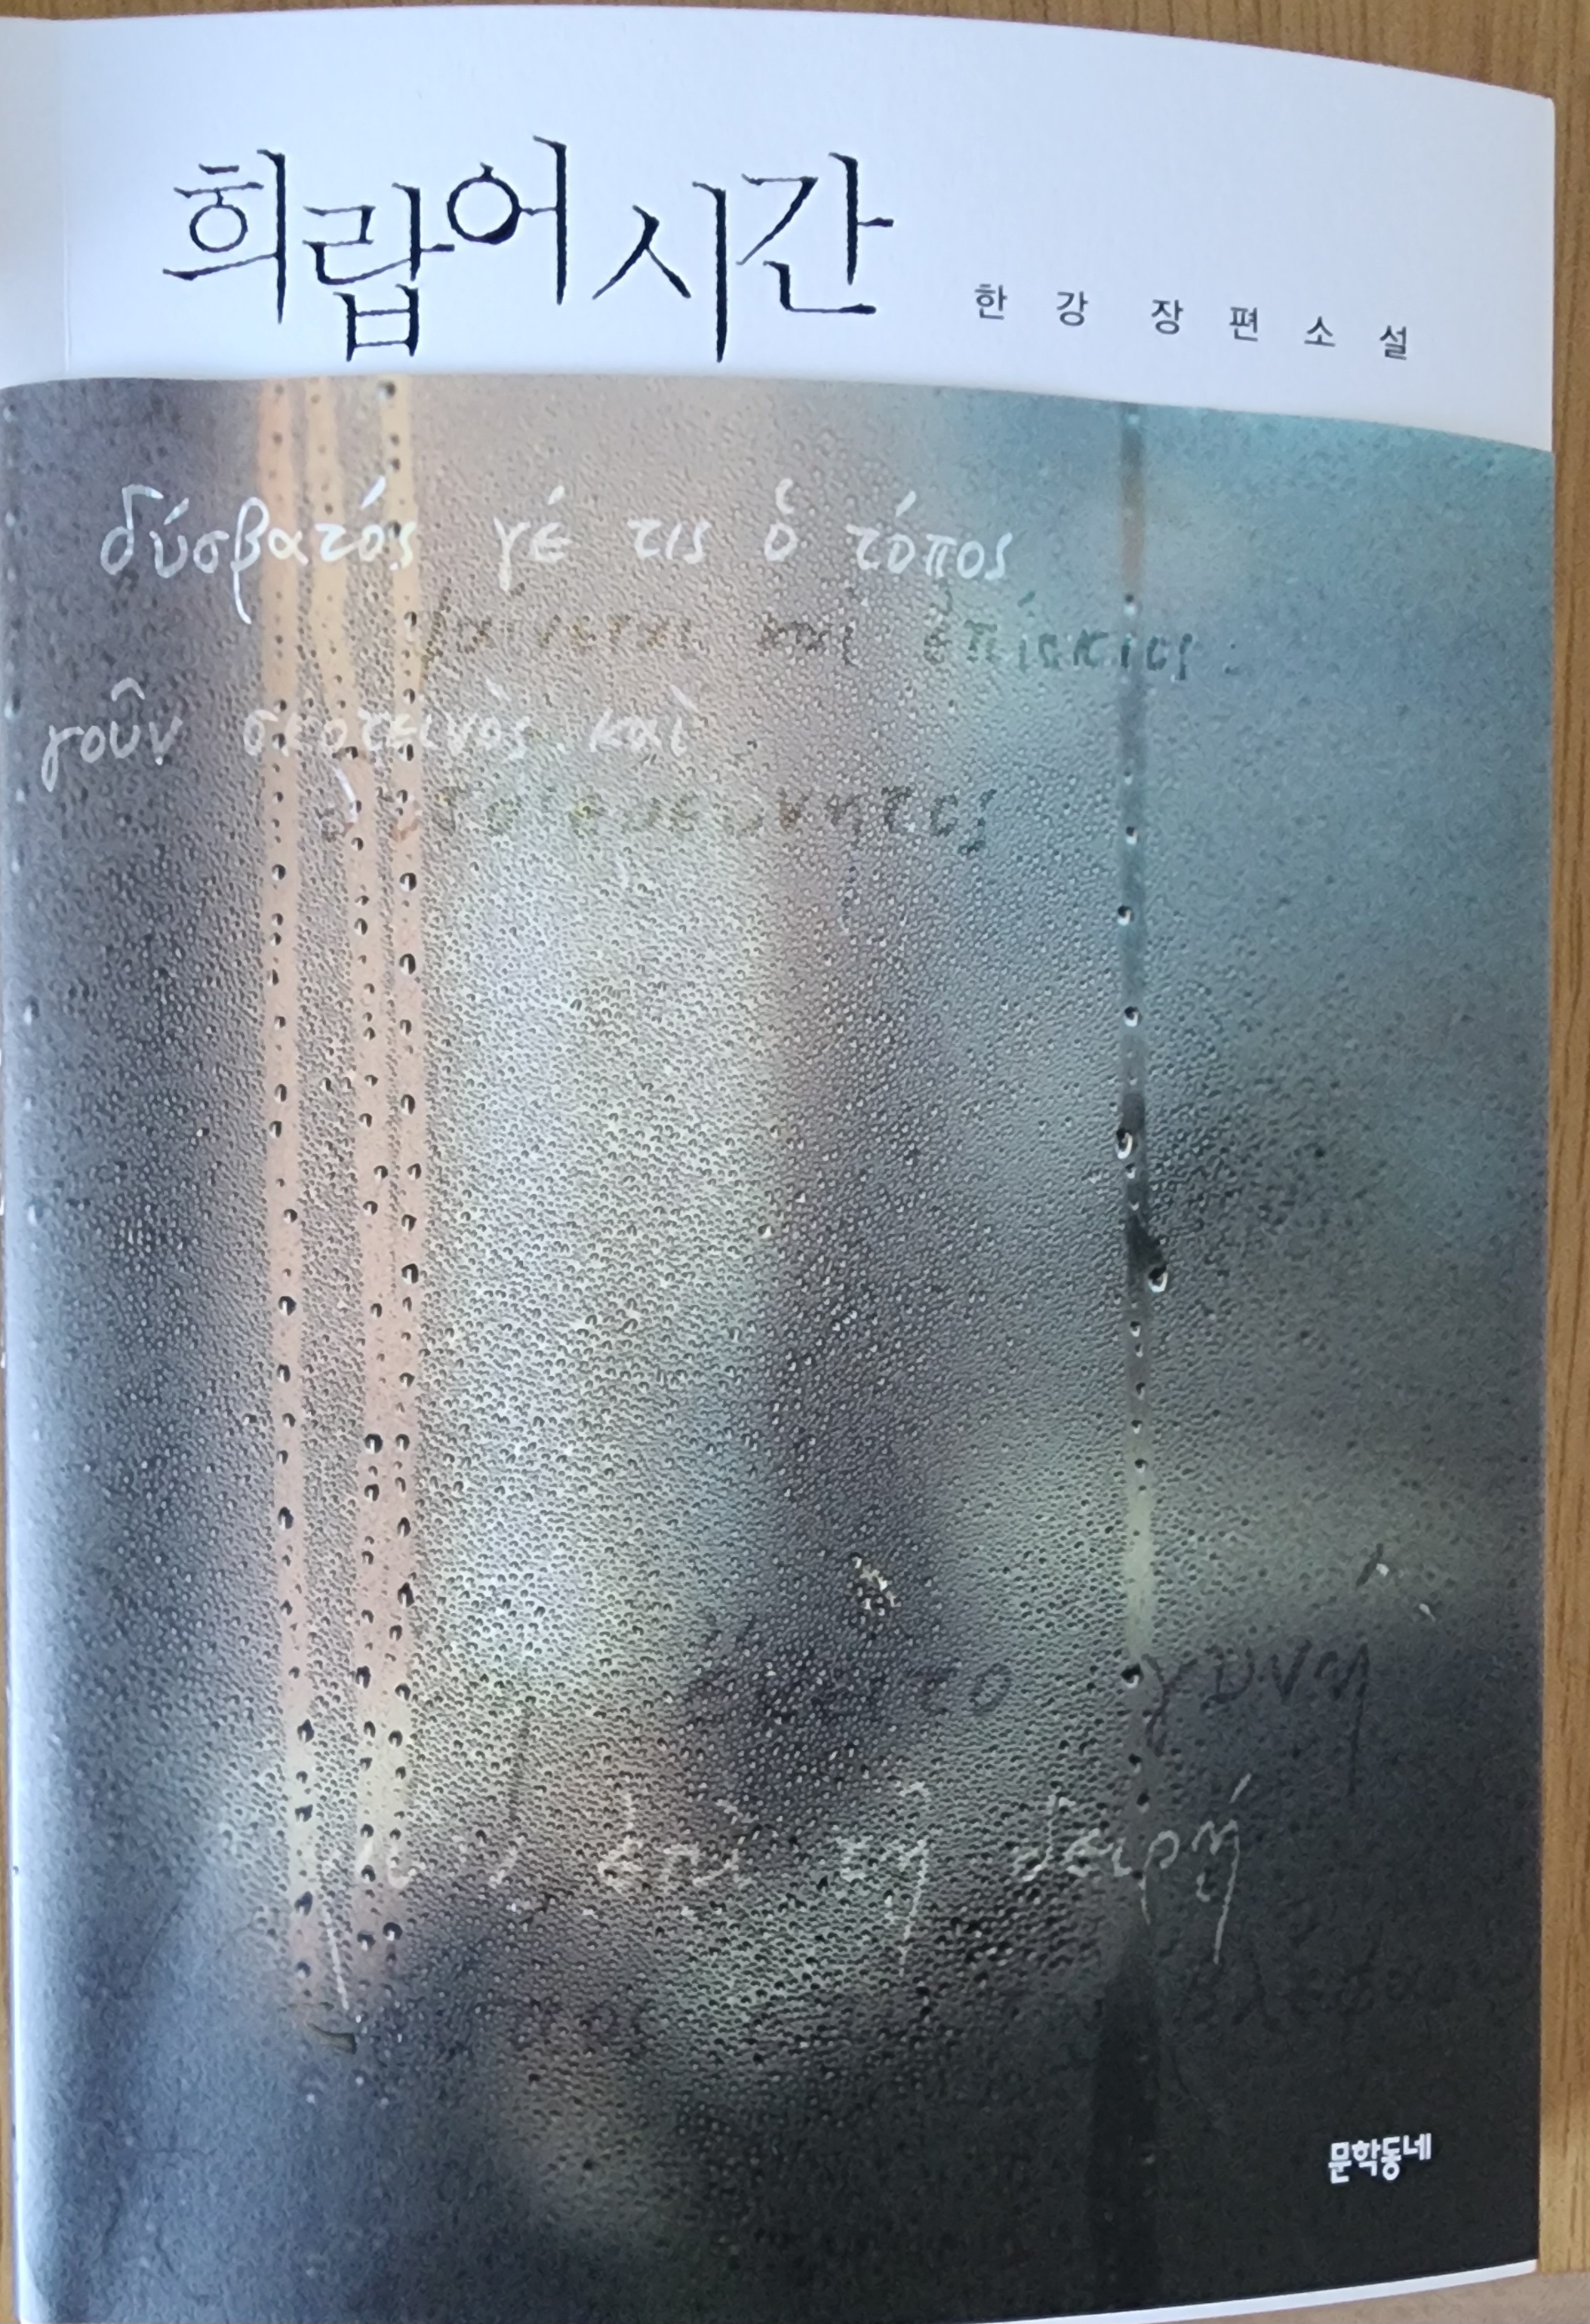 희랍어 시간
한강 장편소설
δύσβατός γέ τις ὁ τόπος
φαίνεται καὶ ἐπίσκιος·
γοῦν σκοτεινὸς καὶ
γυνὴ
ἐπὶ τῇ δειρῇ
문학동네